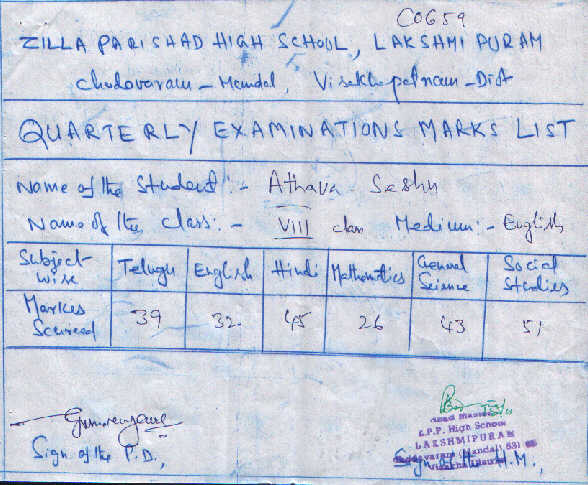 C0659
ZILLA PARISHAD HIGH SCHOOL, LAKSHMIPURAM
Chodavaram - Mandal, Visakhapatnam - Dist
QUARTERLY EXAMINATIONS MARKS LIST
Name of the Student :- Athava Seshu
Name of the class :- VIII class Medium :- English
Subject-wise Telugu English Hindi Mathematics General Science Social Studies
Markes Scurred 39 32 45 26 43 51
Head Master
Z.P.P. High School
LAKSHMIPURAM
(Mandal) 531
Sign of the P.D., Sign of the H.M.,